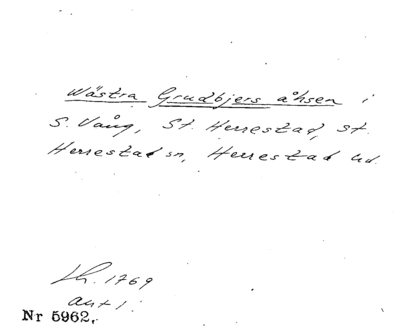 Wästra Grudbjers åhsen i
S. Vång, St. Herrestad, St.
Herrestad sn, Herrestad hd.
Lh. 1769
akt 1.
Nr 5962.